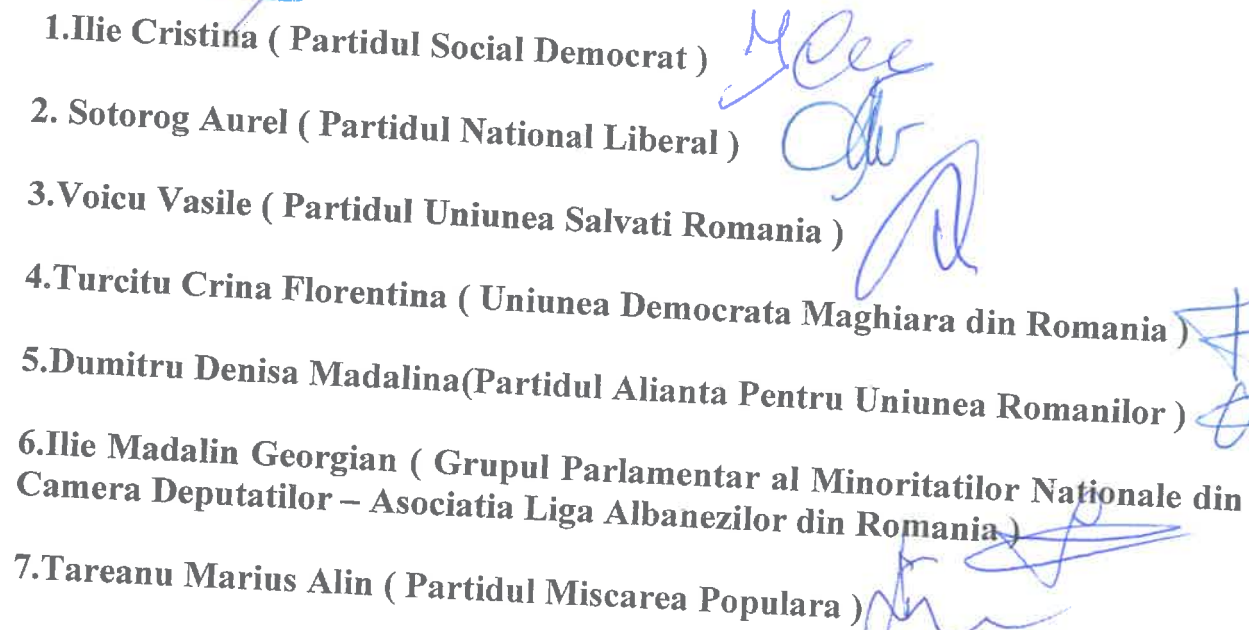 1.Ilie Cristina ( Partidul Social Democrat )
2. Sotorog Aurel ( Partidul National Liberal )
3.Voicu Vasile ( Partidul Uniunea Salvati Romania )
4.Turcitu Crina Florentina ( Uniunea Democrata Maghiara din Romania )
5.Dumitru Denisa Madalina(Partidul Alianta Pentru Uniunea Romanilor )
6.Ilie Madalin Georgian ( Grupul Parlamentar al Minoritatilor Nationale din
Camera Deputatilor – Asociatia Liga Albanezilor din Romania )
7.Tareanu Marius Alin ( Partidul Miscarea Populara )